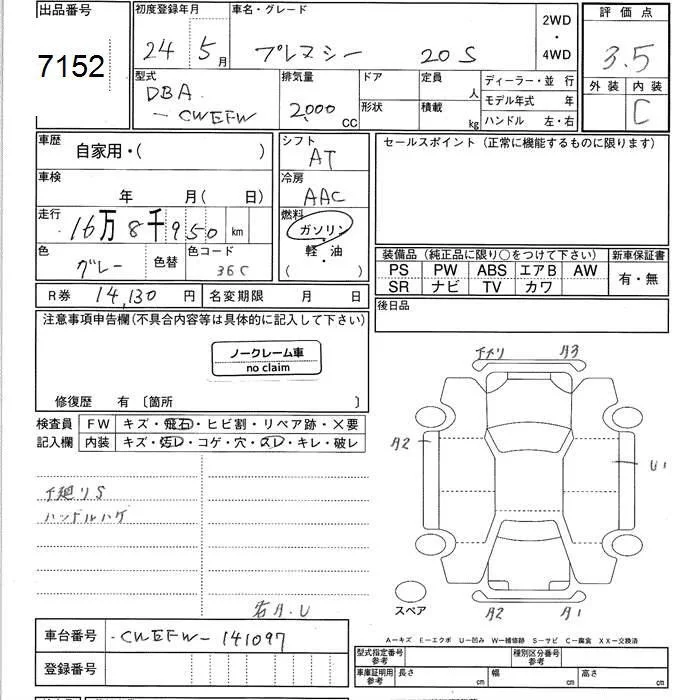 出品番号
7152
初度登録年月
24 5月
車名・グレード
プレマシー 20S
2WD
・
4WD
評価点
3.5
外装 内装
C
型式
DBA
-CWEFW
排気量
2,000 CC
ドア
形状
定員
人
積載
kg
ディーラー・並 行
モデル年式 年
ハンドル 左・右
車歴
自家用・( )
車検
年 月( 日)
走行
16万8千950 km
色
グレー
色替
色コード
36C
シフト
AT
冷房
AAC
燃料
ガソリン
軽・油
( )
セールスポイント (正常に機能するものに限ります)
装備品 (純正品に限り○をつけて下さい)
PS PW ABS エアB AW
SR ナビ TV カワ
新車保証書
有・無
R券 14,130 円
名変期限 月 日
後日品
注意事項申告欄(不具合内容等は具体的に記入して下さい)
ノークレーム車
no claim
修復歴 有 〔箇所 〕
検査員
記入欄
FW キズ・飛石・ヒビ割・リペア跡・×要
内装 キズ・汚レ・コゲ・穴・スレ・キレ・破レ
下廻りS
ハンドルハゲ
若A.U
A3
A2
U1
A2
A1
スペア
A−キズ E−エクボ U−凹み W−補修跡 S−サビ C−腐食 XX−交換済
車台番号 -CWEFW-141097
登録番号
型式指定番号
参考
種別区分番号
参考
車庫証明用
参考
長さ cm
幅 cm
高さ cm